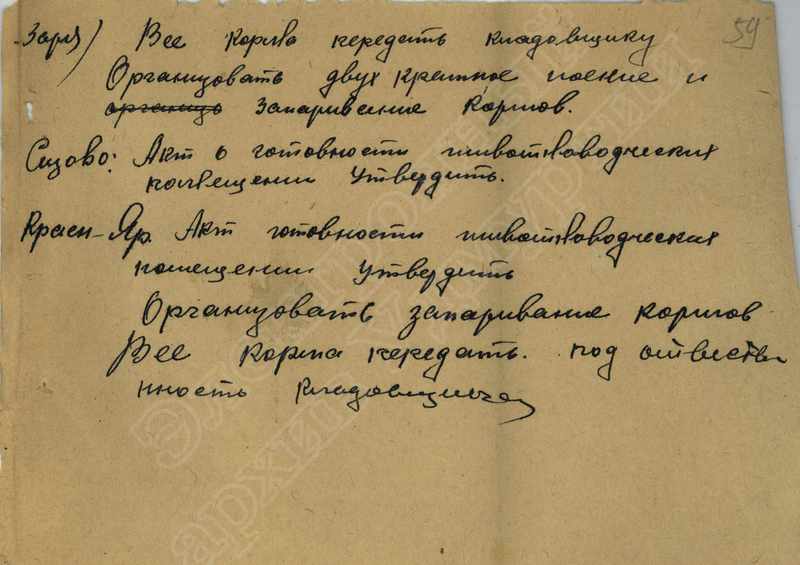 Заря) Все корма передать кладовщику
59
Организовать двух кратное поение и
организо запаривание кормов.
Сизово: Акт о готовности животноводческих
помещении утвердить.
Красн-Яр. Акт готовности животноводческих
помещении утвердить
Организовать запаривание кормов
Все корма передать. под ответстве
нность кладовщика